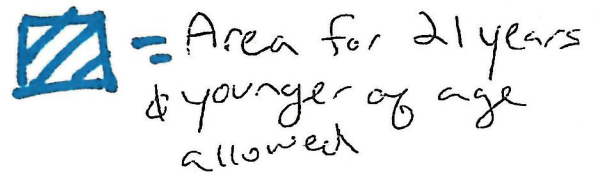 = Area for 21 years
& younger of age
allowed